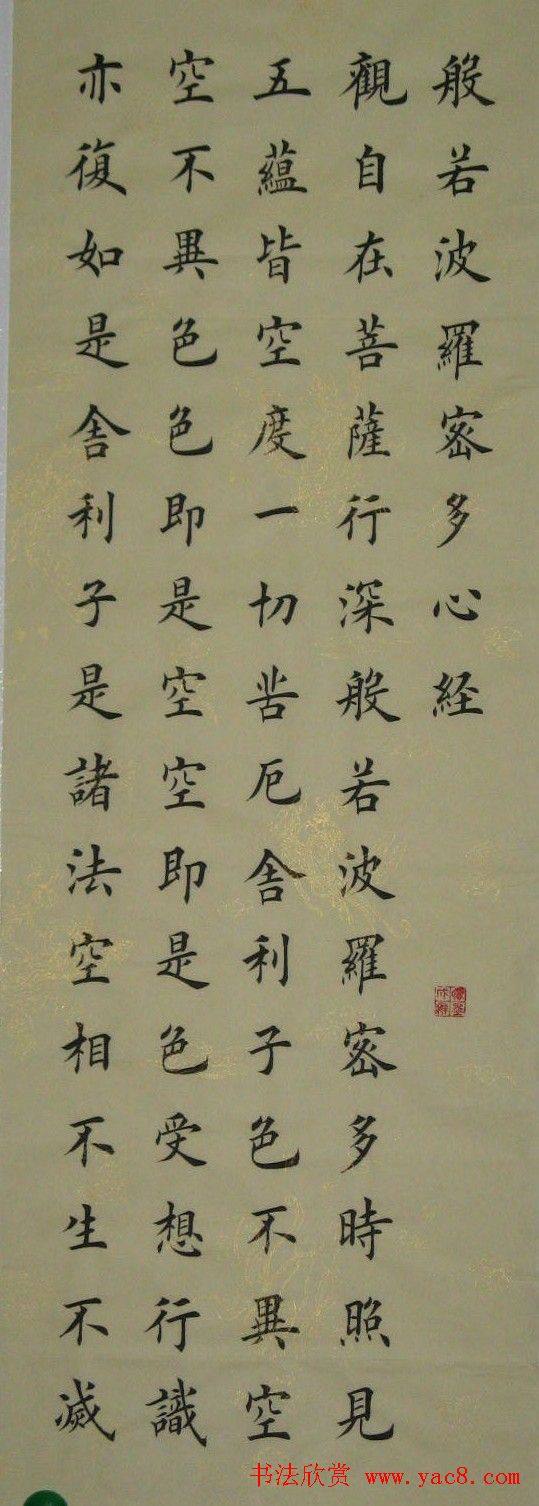 般若波羅密多心経
觀自在菩薩行深般若波羅密多時照見
五蘊皆空度一切苦厄舍利子色不異空
空不異色色即是空空即是色受想行識
亦復如是舍利子是諸法空相不生不滅
书法欣赏 www.yac8.com